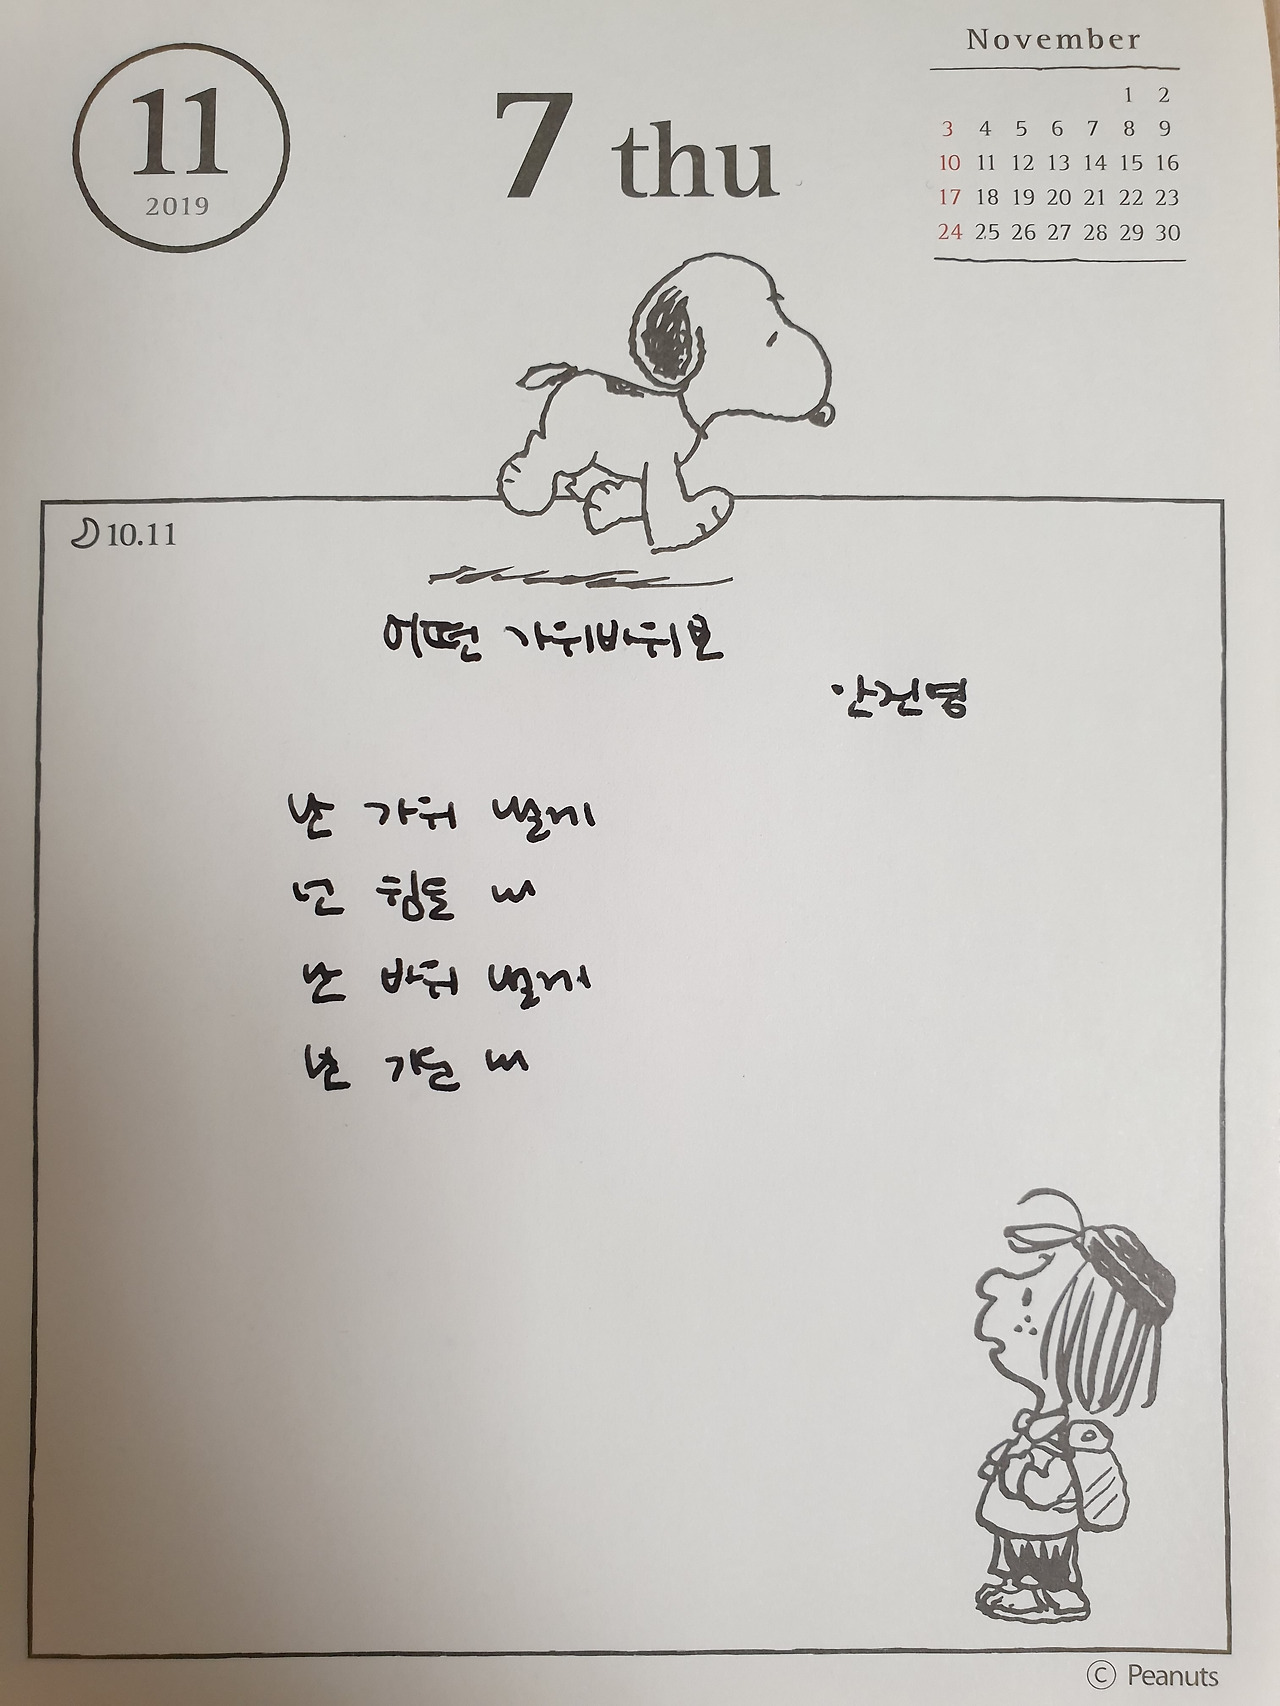 November
11
2019
7 thu
1 2
3 4 5 6 7 8 9
10 11 12 13 14 15 16
17 18 19 20 21 22 23
24 25 26 27 28 29 30
10.11
어떤 가위바위보
안건명
난 가위 낼게
넌 힘들 내
난 바위 낼게
난 가슴 내
© Peanuts